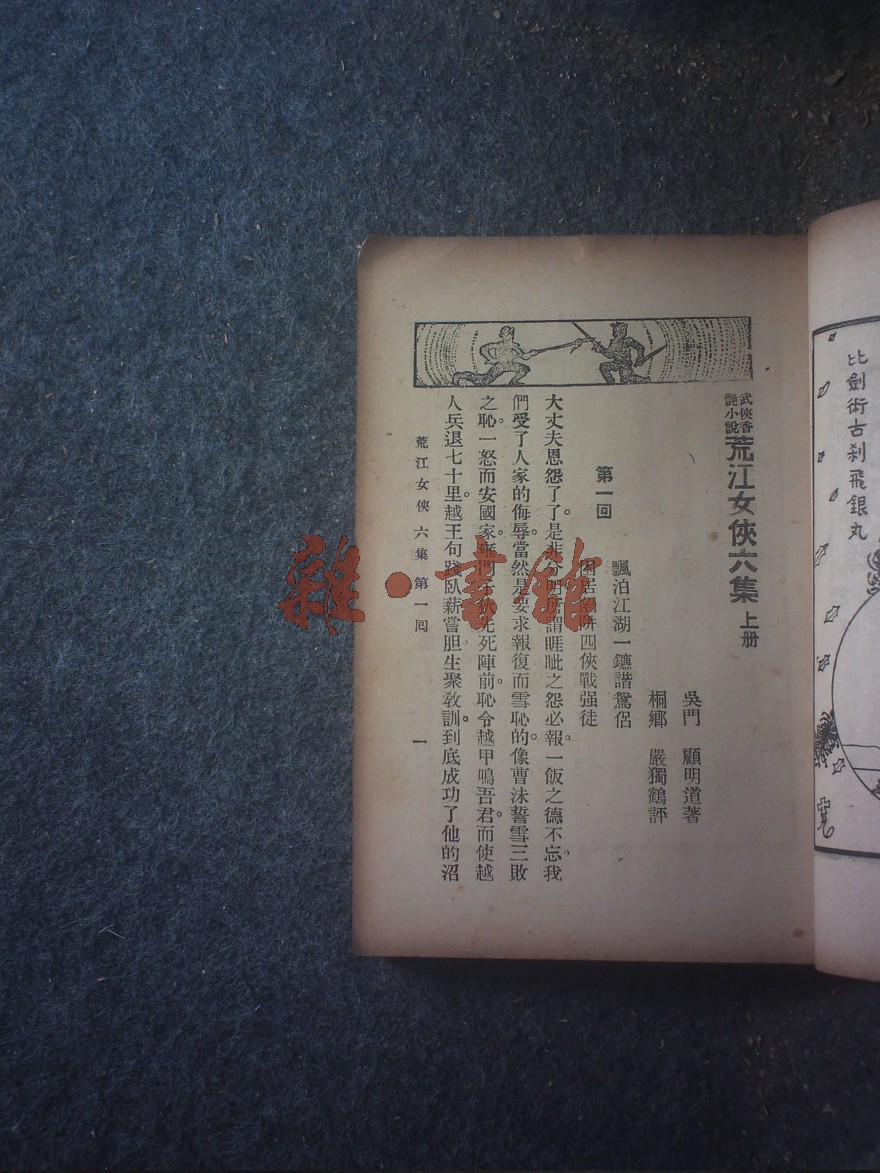 比劍術古刹飛銀丸
武俠香
艷小說
荒江女俠六集 上册
吳門 顧明道著
桐鄉 嚴獨鶴評
第一回
飄泊江湖一鑣諧鴛侶
四俠戰强徒
大丈夫恩怨了了。是非分明。所謂睚眦之怨必報。一飯之德不忘。我
們受了人家的侮辱。當然是要求報復而雪恥的。像曹沫誓雪三敗
之恥。一怒而安國家。雍門子狄先死陣前。恥令越甲鳴吾君。而使越
人兵退七十里。越王句踐臥薪嘗胆生聚教訓。到底成功了他的沼
荒江女俠 六集 第一回 一
雜·書館